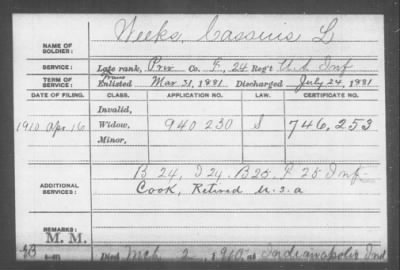 NAME OF SOLDIER: Weeks, Cassius L
SERVICE: Late rank, Priv Co. F, 24 Reg't U.S. Inf
TERM OF SERVICE: Enlisted Mar 31, 1881 Discharged July 24, 1881
DATE OF FILING. CLASS. APPLICATION NO. LAW. CERTIFICATE NO.
Invalid,
1910 Apr. 16 Widow, 940230 S 746,253
Minor,
ADDITIONAL SERVICES: B 24, I 24, B 25, I 25 Inf-
Cook, Retired U.S.A
REMARKS:
M. M.
Died Mch 2, 1910, at Indianapolis Ind